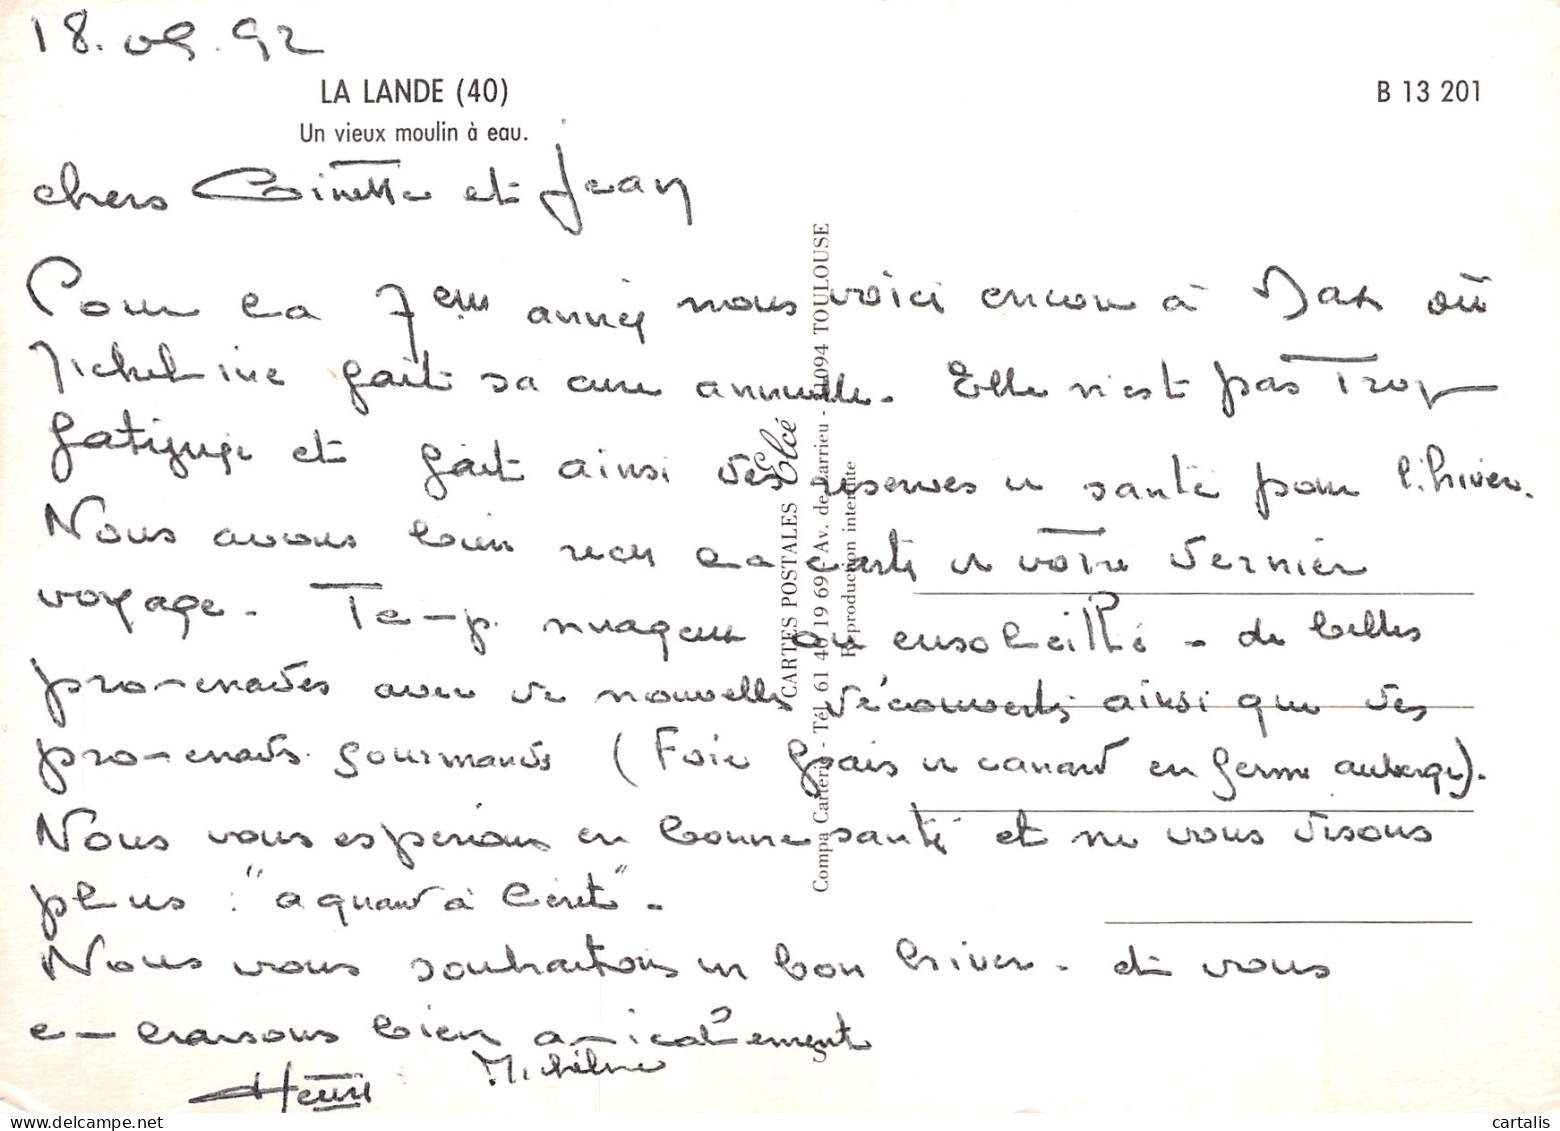 18.09.92
LA LANDE (40)
B 13 201
Un vieux moulin à eau.
chers Ginette et Jean
Pour la 7em année nous voici encore à Dax où
Micheline fait sa cure annuelle. Elle n'est pas trop
fatiguée et fait ainsi des reserves de santé pour l'hiver.
Nous avons bien recu la carte de votre dernier
voyage. Temp. nuageux ou ensoleillé - de belles
promenades avec de nouvelles découvertes ainsi que des
promenades gourmandes (Foie grais de canard en ferme auberge).
Nous vous esperons en bonne santé et ne vous disons
plus : "a quand à Céret" -
Nous vous souhaitons un bon hiver - et vous
embrassons bien amicalement
Henri Micheline
CARTES POSTALES Elcé
Compa Carterie - Tél. 61 40 19 69 Av. de Larrieu - 31094 TOULOUSE
Reproduction interdite
cartalis